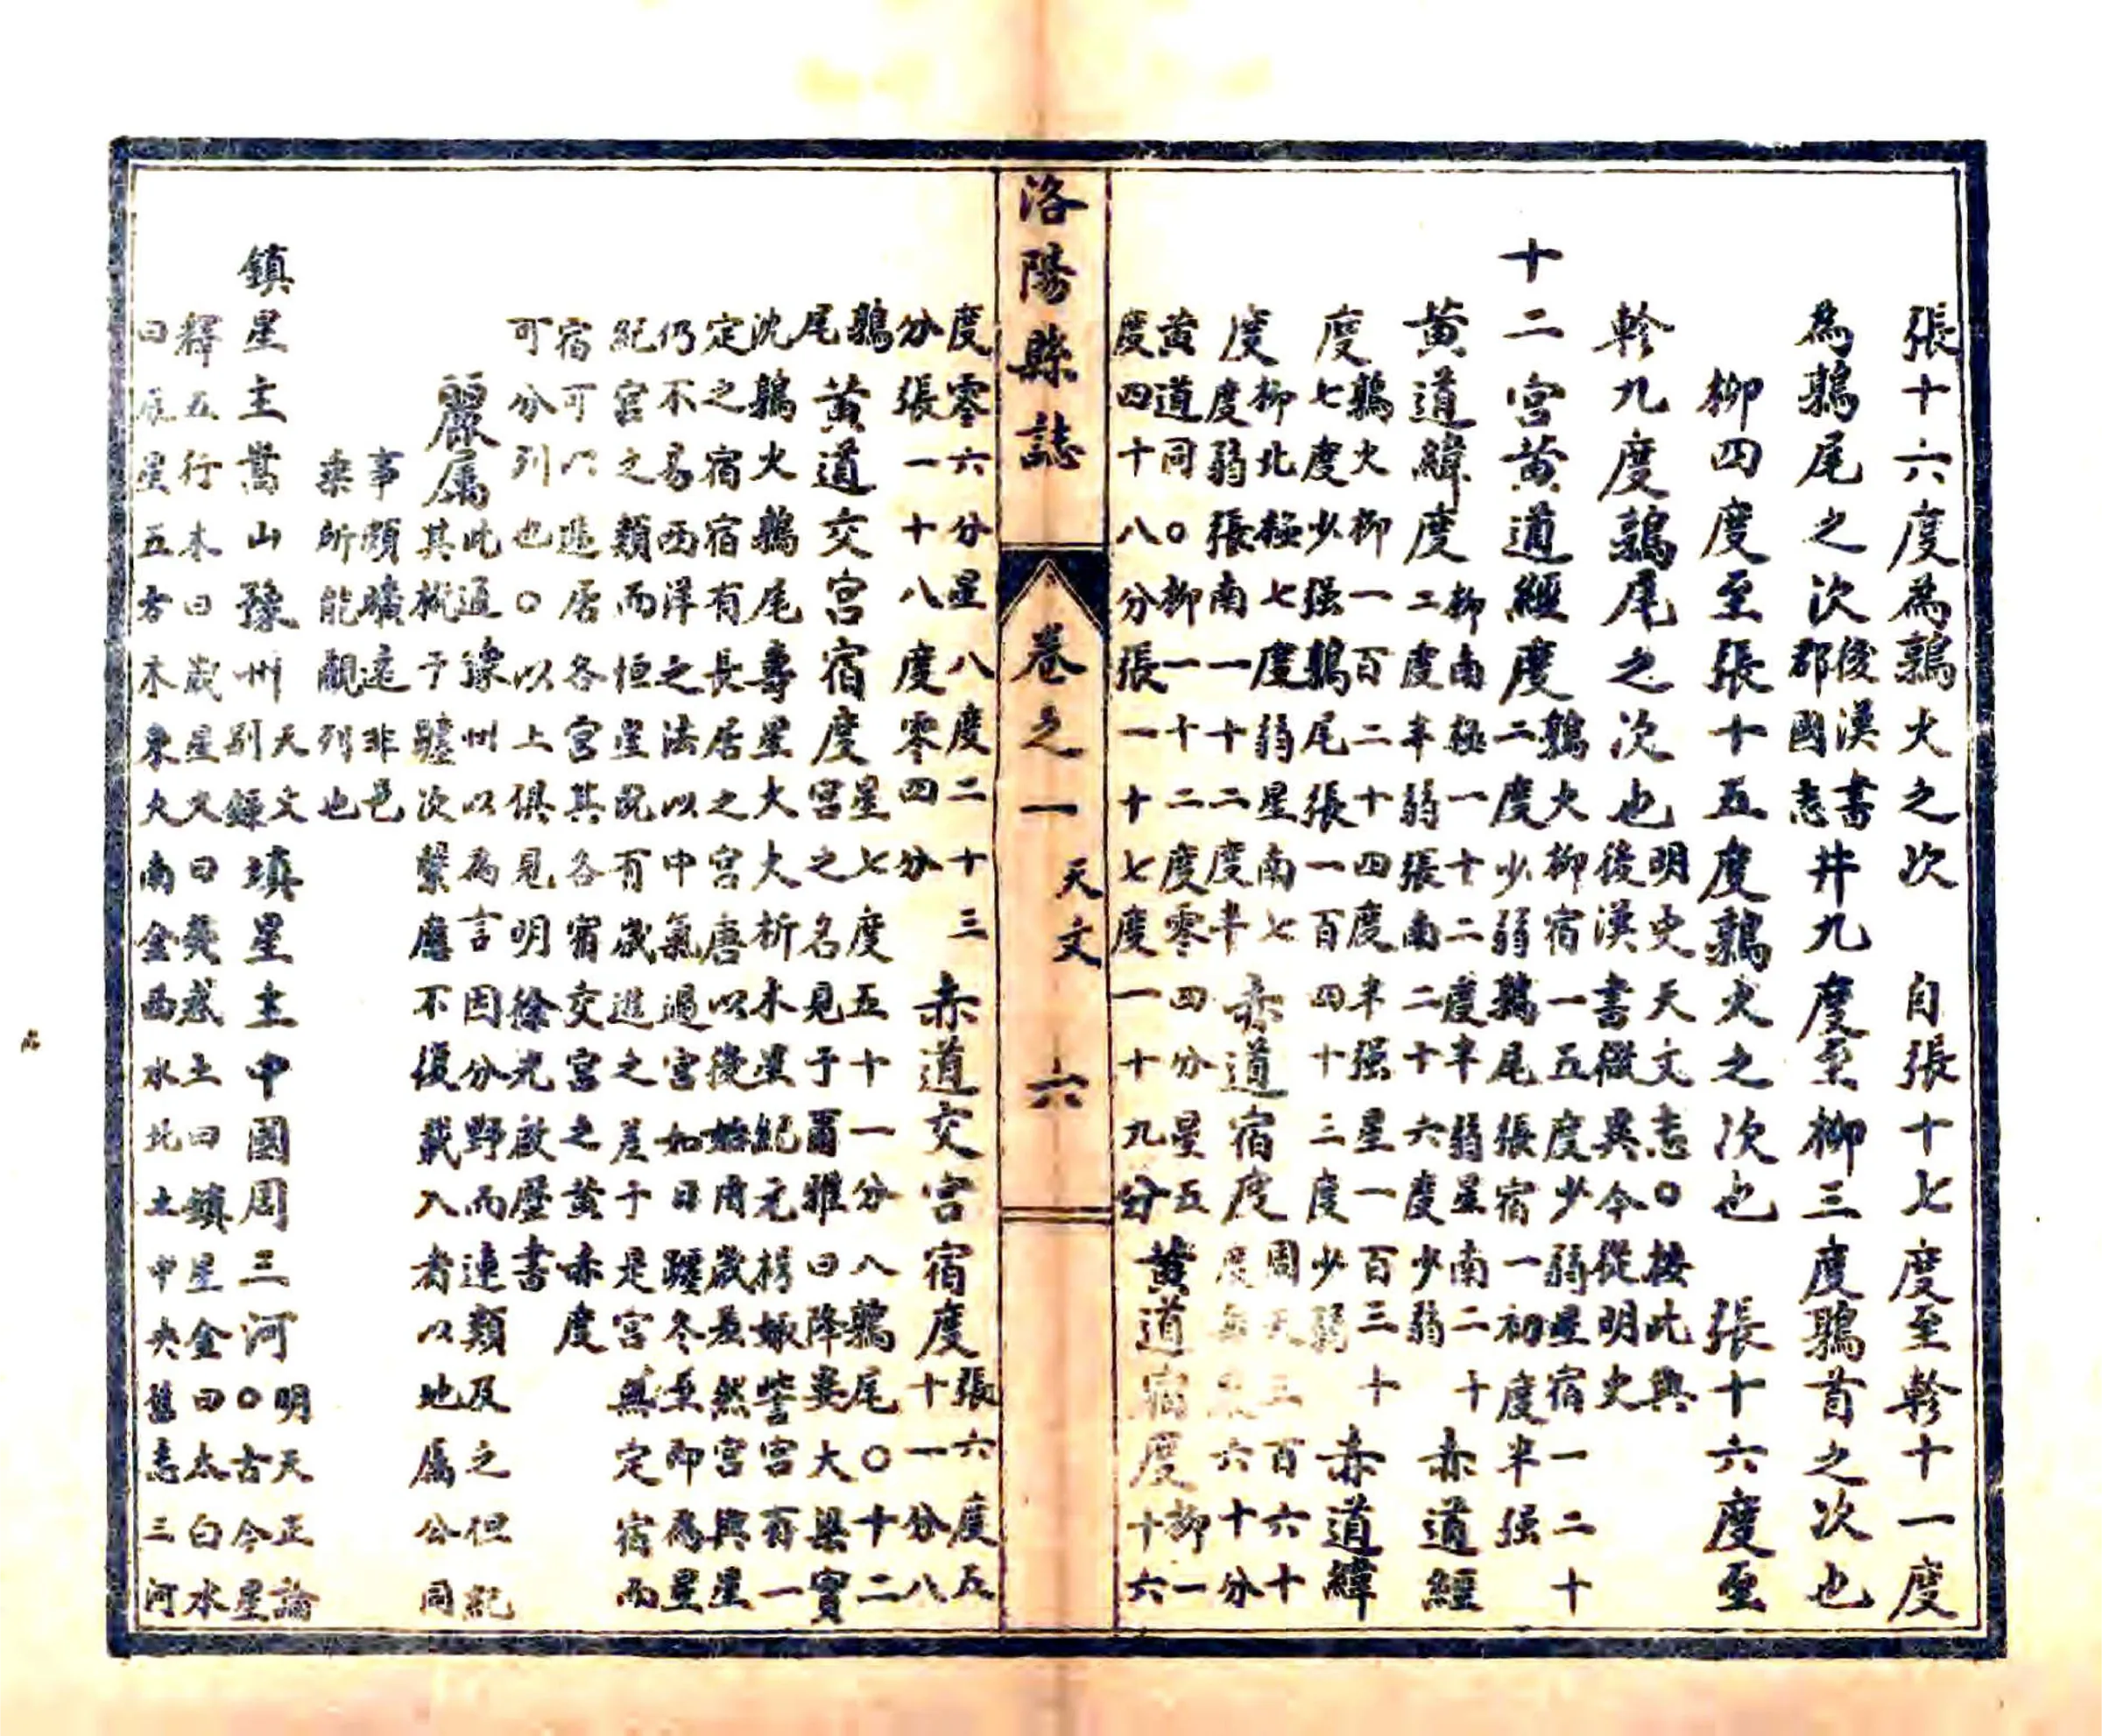 張十六度為鶉火之次　自張十七度至軫十一度
為鶉尾之次後漢書
郡國志井九度至柳三度鶉首之次也
柳四度至張十五度鶉火之次也　張十六度至
軫九度鶉尾之次也明史天文志○按此與
後漢書微異今從明史
十二宮黃道經度鶉火柳宿一五度少弱星宿一二十
二度少弱鶉尾張宿一初度半强
黃道緯度柳南極一十二度半弱星南二十
二度半弱張南二十六度少弱赤道經
度鶉火柳一百二十四度半强星一百三十
七度少强鶉尾張一百四十三度少弱赤道緯
度柳北極七度弱星南七
度弱張南一十二度半赤道宿度周天三百六十
度六十分
黃道同○柳一十二度零四分星五
度四十八分張一十七度一十九分黃道宿度柳一
十六
洛陽縣誌　卷之一　天文　六
度零六分星八度二十三
分張一十八度零四分赤道交宮宿度張六度五
十一分八
鶉
尾黃道交宮宿度星七度五十一分八鶉尾○十二
宮之名見于爾雅曰降婁大梁實
沈鶉火鶉尾壽星大火析木星紀元枵娵訾宮有一
定之宿宿有長居之宮唐以後始用歲差然宮與星
仍不易西洋之法以中氣過宮如日躔冬至即為星
紀宮之類而恒星既有歲進之差于是宮無定宿而
宿可以遞居各宮其各宿交宮之黃赤度
可分列也○以上俱見明徐光啟歷書
麗屬此通豫州以為言因分野而連類及之但紀
其概于躔次繫應不復載入者以地屬公同
事頗曠遠非邑
乘所能覼列也
鎮星主嵩山豫州天文
別錄填星主中國周三河明天正論
○古今星
釋五行木曰歲星火曰熒惑土曰鎮星金曰太白水
曰辰星五方木東火南金西水北土中央舊志三河